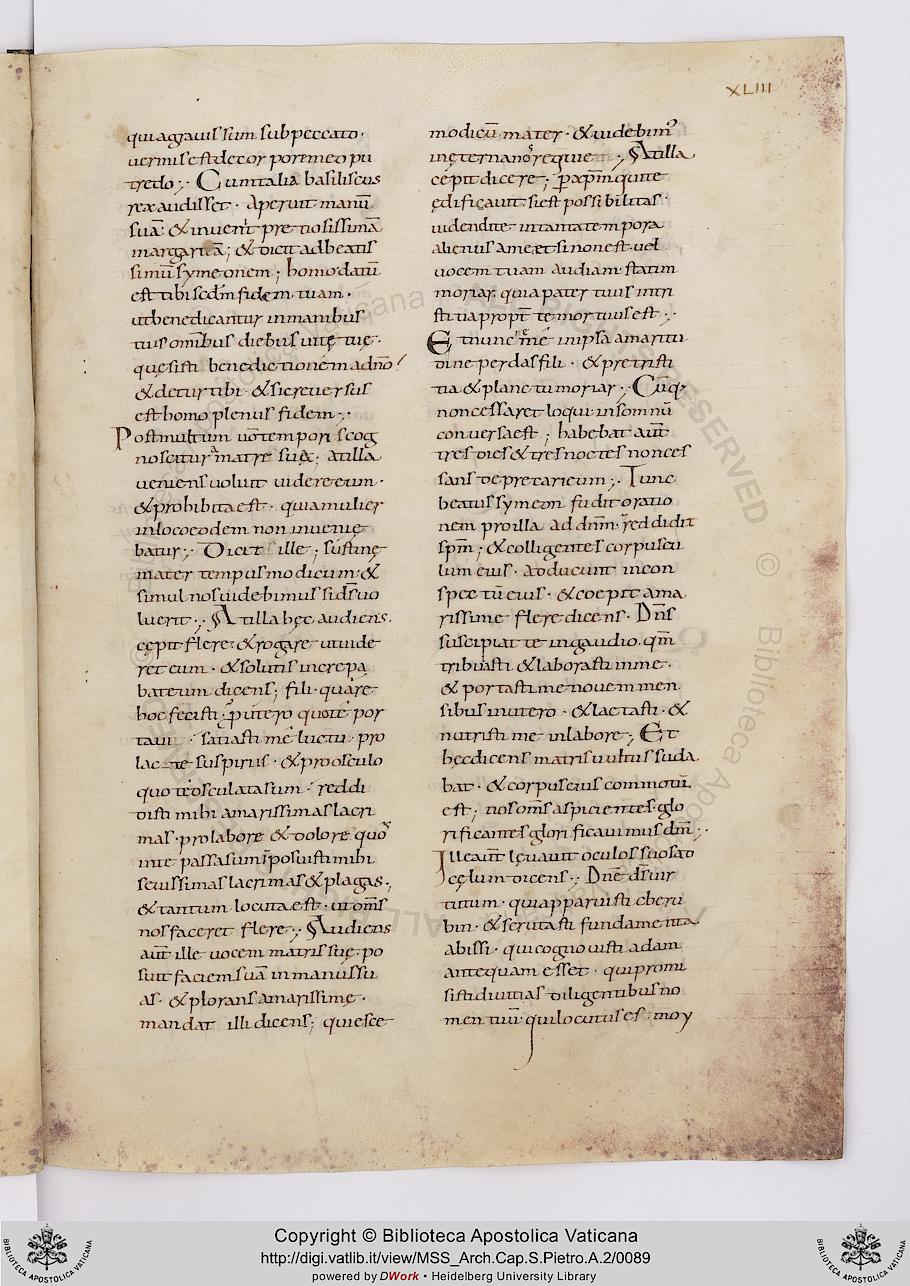 XLIII
qui agravis sum sub peccato·
vermis est decor por eme o pu
tredo;· Cum talia basiliscus
rex audisset· aperuit manū
suā· & invenit pretiosissimā
margaritā; & dicit ad beatis
simū symeonem; homo datū
est tibi scdm̄ fidem tuam·
ut benedicantur in manibus
tuis omnibus diebus vitę tuę·
quesisti benedictionem ad dn̄o
& detur tibi· & sic reversus
est homo plenus fidem;·
Post multum vō tempori s cog
noscitur a matre suę; at illa
veniens voluit videre eum·
& prohibita est· quia mulier
in loco eodem non invenię
batur;· Dicit ille; sustinę
mater tempus modicum· &
simul nos videbimus si ds̄ vo
luerit;· At illa hęc audiens·
cępit flere· & rogare ut vide
ret eum· & solutis increpa
bat eum dicens; fili· quare
hoc fecisti· p̄ utero quo te por
tavi· satiasti me luctu· pro
lacte suspiriis· & pro osculo
quo te osculata sum· reddi
disti mihi amarissimas lacri
mas· pro labore & dolore quos
in te passa sum īposuisti mihi
sevissimas lacrimas & plagas·,
& tantum locuta est· ut om̄s
nos faceret flere;· Audiens
aūt ille vocem matris suę· po
suit faciem suā in manus su
as· & plorans amarissime·
mandat illi dicens; quiesce
modicū mater· & videbim̄
in ęterna nos requie;· At illa
cępit dicere; p xp̄m qui te
ędificavit· si est possibilitas·
videndi te· in tanta tempora
alienus a me· et si non est· vel
vocem tuam audiam· statim
moriar· quia pater tuus in tri
stitia propt̄ te mortuus est;·
Et nunc me in ipsa amaritu
dine perdas fili· & pre tristi
tia & planctu moriar;· Cūq;
non cessaret loqui in somnū
conversa est; habebat aūt
tres dies & tres noctes non ces
sans deprecari eum;· Tunc
beatus symeon fudit oratio
nem pro illa ad dnm̄· reddidit
sp̄m; & colligentes corpuscu
lum eius· adducunt in con
spectū eius· & coepit ama
rissime flere dicens· Dn̄s
suscipiat te in gaudio· qm̄
tribulasti & laborasti in me·
& portasti me novem men
sibus in utero· & lactasti· &
nutristi me in labore; Et
hęc dicens matris vultus suda
bat· & corpus eius commotū
est; nos om̄s aspicientes· glo
rificantes glorificavimus dm̄;·
Ille aūt levavit oculos suos ad
cęlum dicens;· Dn̄e ds̄ vir
tutum· qui apparuisti cheru
bin· & scrutasti fundamenta
abissi· qui cognovisti adam
antequam esset· qui promi
sisti divitias diligentibus no
men tuū· qui locutus es· moy
Copyright © Biblioteca Apostolica Vaticana
http://digi.vatlib.it/view/MSS_Arch.Cap.S.Pietro.A.2/0089
powered by DWork • Heidelberg University Library